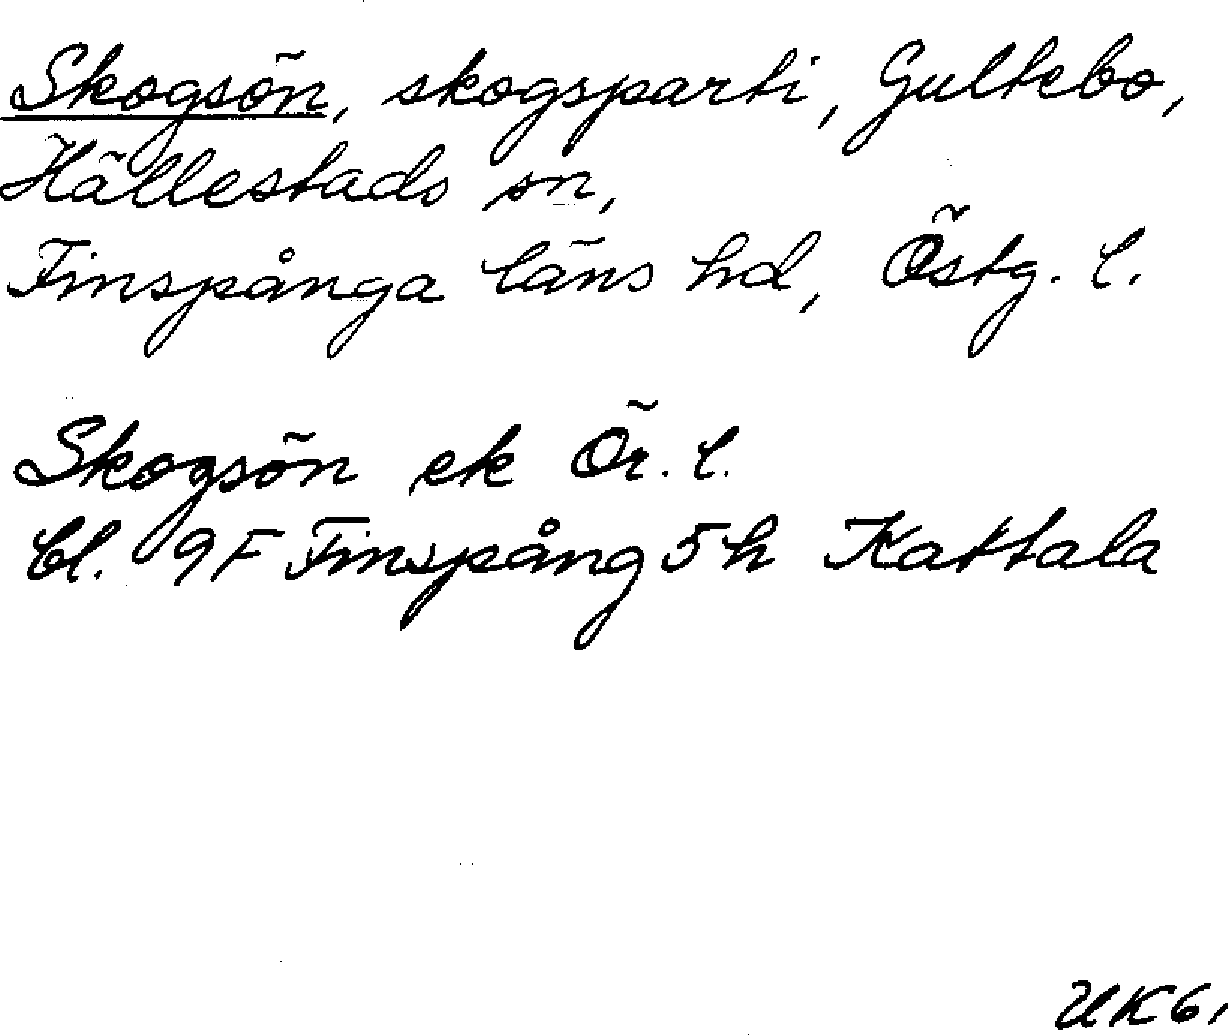 Skogsön, skogsparti, Gultebo,
Hällestads sn,
Finspånga läns hd, Östg. l.
Skogsön ek Ör. l.
bl. 9F Finspång 5h Kattala
UK6